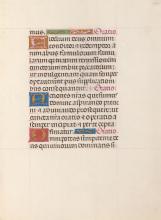 mus. Oratio
Fidelium deus omnium
conditor et redemptor a
nimabus famulorum famula
rumque tuarum remissionem
cunctorum tribue peccatorum
ut indulgentiam quam semper
optaverunt piis supplicationi
bus consequantur Oratio
Actiones nostras quesumus
domine aspirando preveni
et adiuvando prosequere ut
operatio et a te
semper incipiat et per te cepta
finiatur. Oratio
Omnipotens sempiterne de
us qui vivorum dominaris